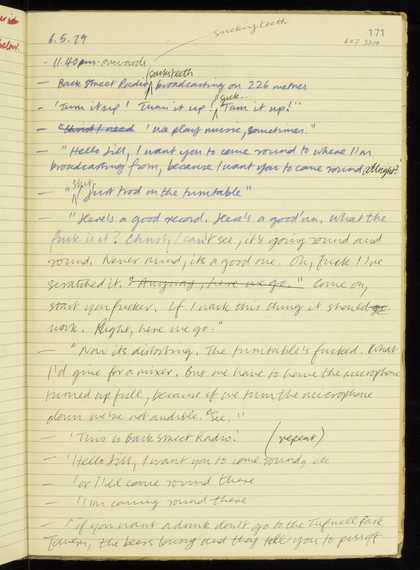 sucking teeth
171
6.5.79
11.40pm onwards
sucks teeth
— Back Street Radio, broadcasting on 226 metres
suck
— 'Turn it up! Turn it up! Turn it up!"
— "Christ I need 'we play music, sometimes."
— "Hello Jill, I want you to come round to where I'm
broadcasting from, because I want you to come round, alright?
— "Just trod on the turntable"
— "Here's a good record. Here's a good'un. What the
fuck is it? Christ, I can't see, it's going round and
round. Never mind, its a good one. Oh, fuck I've
scratched it. "Anyway, here we go." Come on,
start you fucker. If I wack this thing it should go
work. Right, here we go."
— "Now its distorting. The turntable's fucked. What
I'd give for a mixer. But we have to have the microphone
turned up full, because if we turn the microphone
down we're not audible. See."
— 'This is Back Street Radio. (repeat)
— 'Hello Jill, I want you to come round, etc
— 'or I'll come round there
— 'I'm coming round there
— "if you want a drink don't go to the Tufnell Park
Tavern, the beers boring and they tell you to piss off
below.